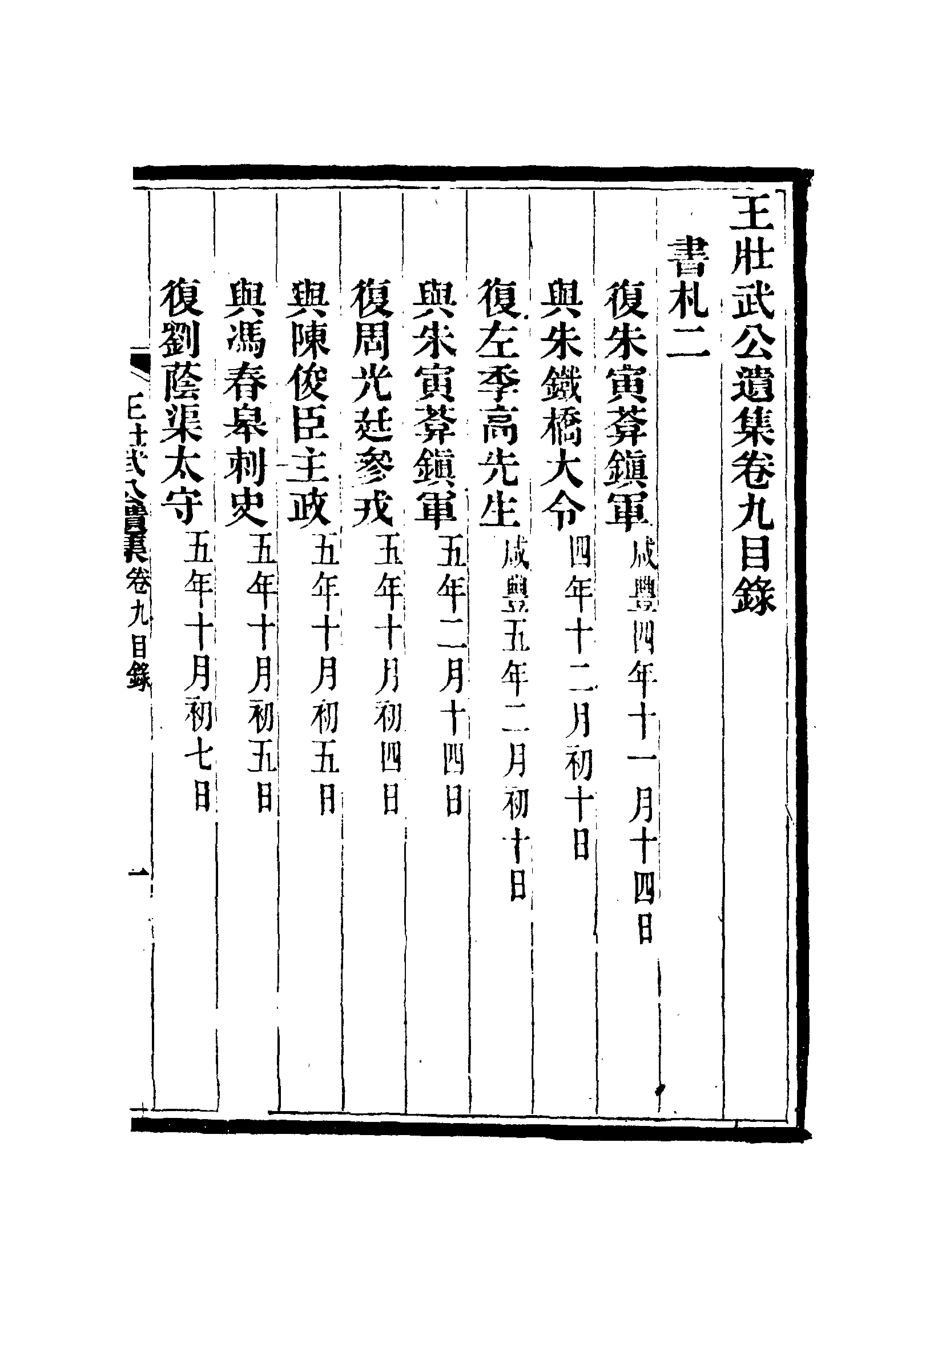 王壯武公遺集卷九目錄
書札二
復朱寅菶鎭軍咸豐四年十一月十四日
與朱鐵橋大令四年十二月初十日
復左季高先生咸豐五年二月初十日
與朱寅菶鎭軍五年二月十四日
復周光廷參戎五年十月初四日
與陳俊臣主政五年十月初五日
與馮春皋刺史五年十月初五日
復劉蔭渠太守五年十月初七日
王壯武公遺集卷九目錄 一